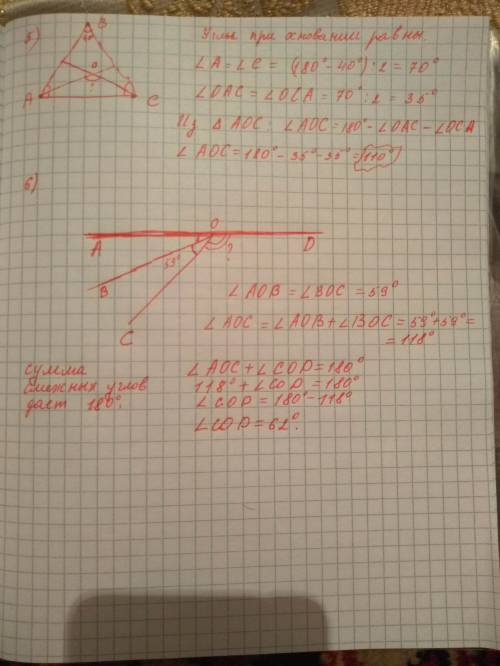 5)
B
40°
O
?
A
C
Углы при основании равны.
∠A = ∠C = (180° - 40°) : 2 = 70°
∠OAC = ∠OCA = 70° : 2 = 35°
Из △ AOC: ∠AOC = 180° - ∠OAC - ∠OCA
∠AOC = 180° - 35° - 35° = 110°
6)
O
A
D
59°
?
B
C
∠AOB = ∠BOC = 59°
∠AOC = ∠AOB + ∠BOC = 59° + 59° =
= 118°
сумма
смежных углов
даст 180°.
∠AOC + ∠COD = 180°
118° + ∠COD = 180°
∠COD = 180° - 118°
∠COD = 62°.